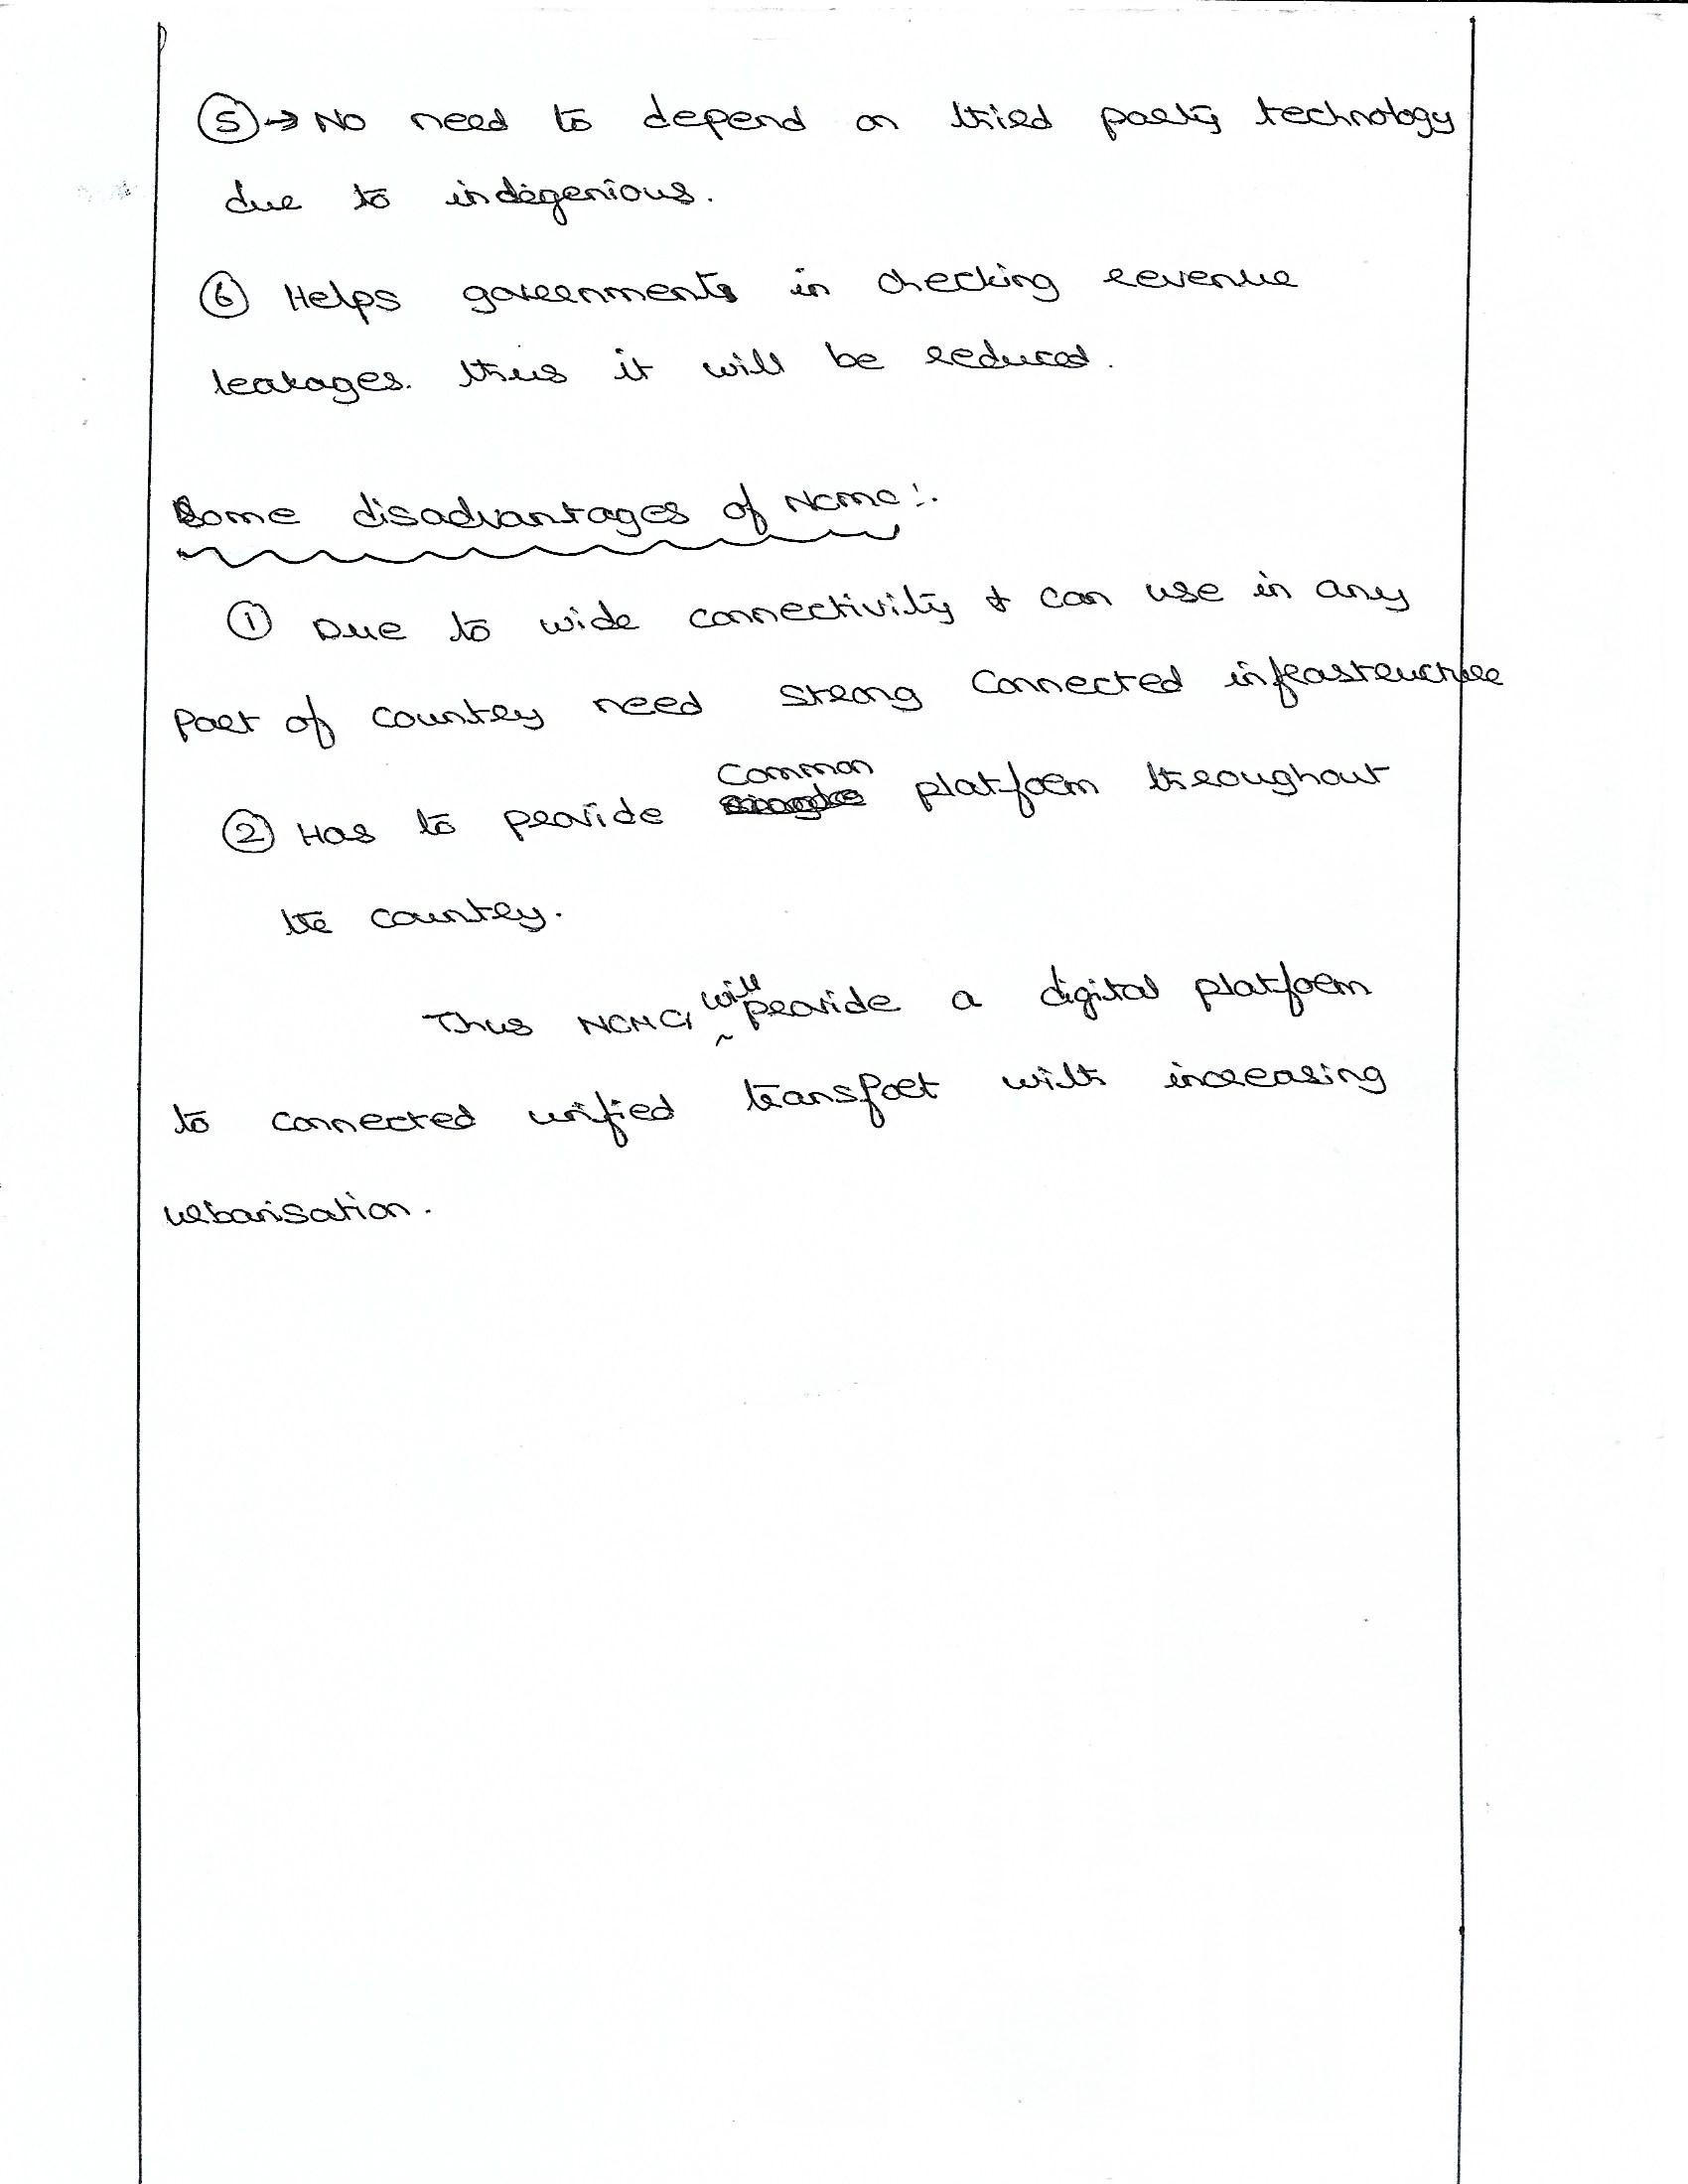 ⑤→ No need to depend on third party technology
due to indegenious.
⑥ Helps governments in checking revenue
leakages. thus it will be reduced.
Some disadvantages of NCMC:.
① Due to wide connectivity & can use in any
part of country need strong connected infrastructure
② Has to provide common platform throughout
the country.
Thus NCMC will provide a digital platform
to connected unified transport with increasing
urbanisation.